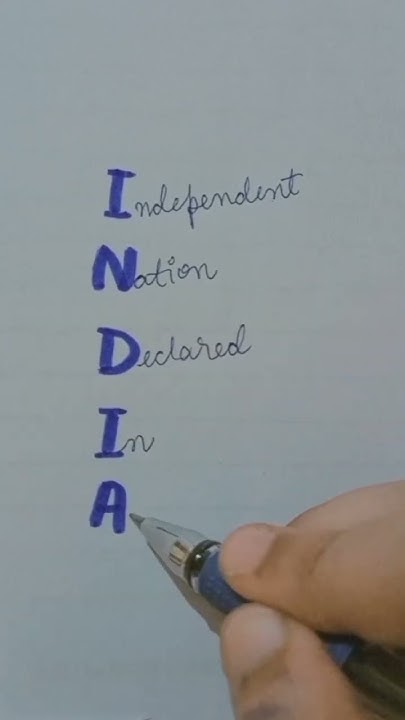 Independent
Nation
Declared
In
A